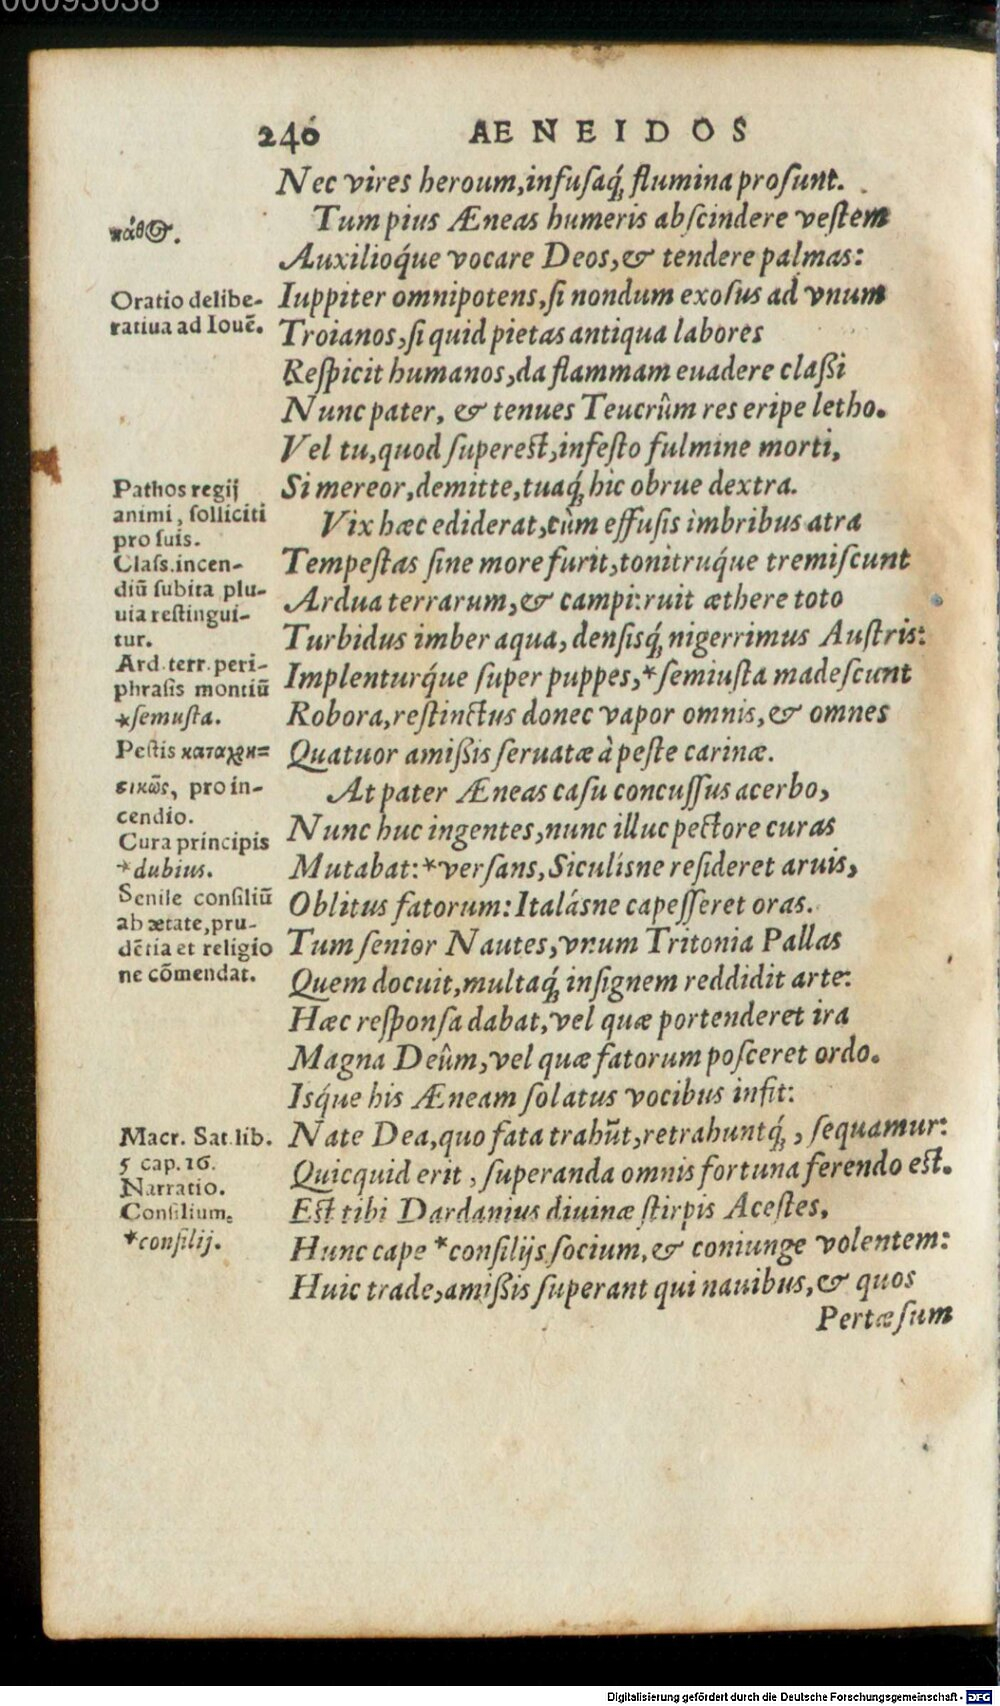 00093038
240 AENEIDOS
Nec vires heroum,infusaq́; flumina prosunt.
Tum pius Æneas humeris abscindere vestem
πάθος.
Auxilioq́ue vocare Deos,& tendere palmas:
Oratio delibe-
ratiua ad Iouē.
Iuppiter omnipotens,si nondum exosus ad vnum
Troianos,si quid pietas antiqua labores
Respicit humanos,da flammam euadere claßi
Nunc pater, & tenues Teucrûm res eripe letho.
Vel tu,quod superest,infesto fulmine morti,
Pathos regij
animi, solliciti
pro suis.
Si mereor,demitte,tuaq́; hic obrue dextra.
Vix hæc ediderat,cùm effusis imbribus atra
Class.incen-
diū subita plu-
uia restingui-
tur.
Tempestas sine more furit,tonitruq́ue tremiscunt
Ardua terrarum,& campi:ruit æthere toto
Turbidus imber aqua, densisq́; nigerrimus Austris:
Ard.terr.peri-
phrasis montiū
*semusta.
Implenturq́ue super puppes,*semiusta madescunt
Robora,restinctus donec vapor omnis,& omnes
Pestis καταχρη=
σικῶς, pro in-
cendio.
Quatuor amißis seruatæ à peste carinæ.
At pater Æneas casu concussus acerbo,
Nunc huc ingentes,nunc illuc pectore curas
Cura principis
*dubius.
Mutabat:*versans,Siculísne resideret aruis,
Senile consiliū
ab ætate,pru-
dētia et religio
ne cōmendat.
Oblitus fatorum:Italásne capesseret oras.
Tum senior Nautes,vnum Tritonia Pallas
Quem docuit,multaq́; insignem reddidit arte:
Hæc responsa dabat,vel quæ portenderet ira
Magna Deûm,vel quæ fatorum posceret ordo.
Isq́ue his Æneam solatus vocibus infit:
Macr. Sat.lib.
5 cap.16.
Nate Dea,quo fata trahūt,retrahuntq́; , sequamur:
Narratio.
Quicquid erit , superanda omnis fortuna ferendo est.
Consilium.
Est tibi Dardanius diuinæ stirpis Acestes,
*consilij.
Hunc cape *consilijs socium,& coniunge volentem:
Huic trade,amißis superant qui nauibus,& quos
Pertæsum
Digitalisierung gefördert durch die Deutsche Forschungsgemeinschaft - DFG